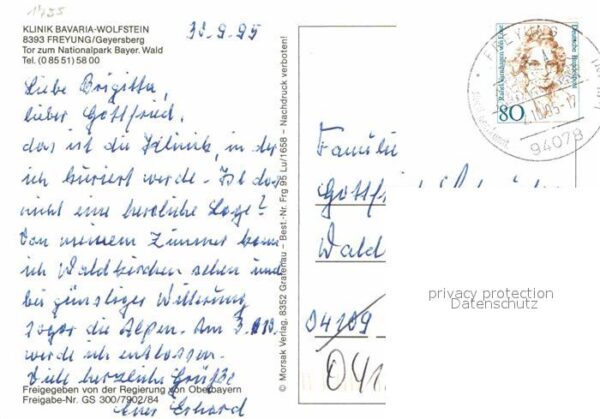 1435
KLINIK BAVARIA-WOLFSTEIN
8393 FREYUNG/Geyersberg
Tor zum Nationalpark Bayer. Wald
Tel. (0 85 51) 58 00
30.9.95
Liebe Brigitta,
lieber Gottfried,
das ist die Klinik, in der
ich kuriert werde. Ist das
nicht eine herrliche Lage?
Von meinem Zimmer kann
ich Waldkirchen sehen und
bei günstiger Witterung
sogar die Alpen. Am 3.10.
werde ich entlassen.
Viele herzliche Grüße
Euer Erhard
Freigegeben von der Regierung von Oberbayern
Freigabe-Nr. GS 300/7902/84
© Morsak Verlag, 8352 Grafenau – Best.-Nr. Frg 95 Lu/1658 – Nachdruck verboten!
Deutsche Bundespost
80
FREYUNG
95-17
94078
Familie
Gottfr
Wald
04109
041
privacy protection
Datenschutz